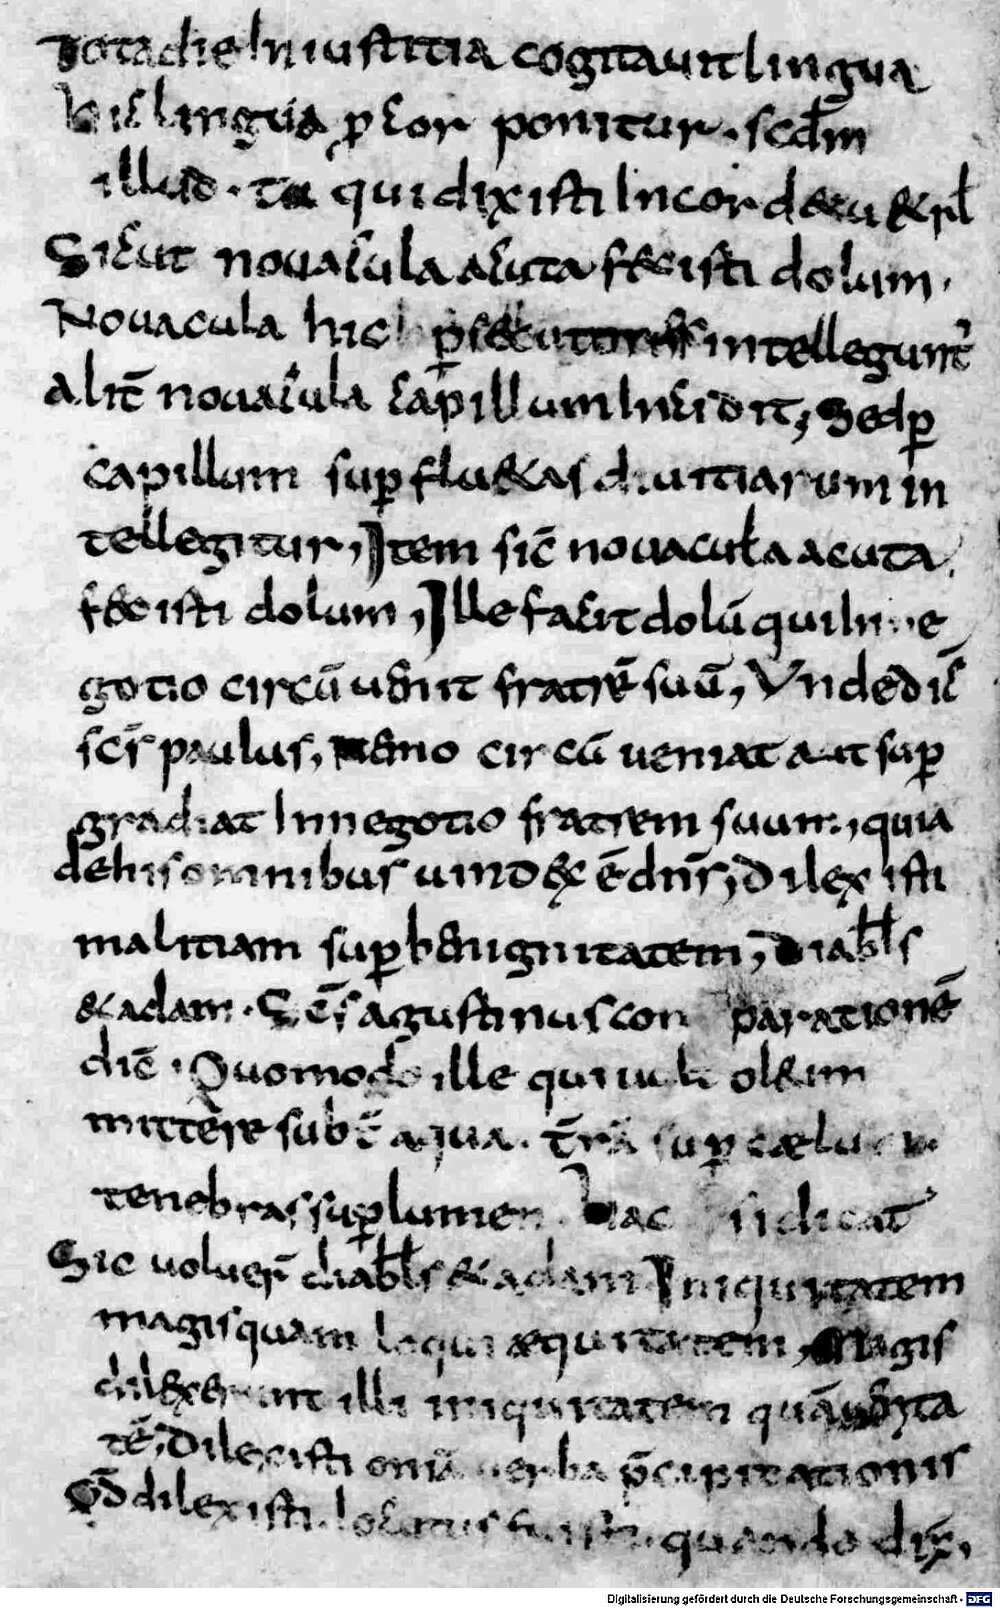 Tota die Iniustitia cogitauit lingua
hic lingua p̱ cor ponitur. scđm
illud. tu qui dixisti In corde tu & rł
Sicut nouacula acuta fecisti dolum.
Nouacula hic ꝑsecutores intelleguntr̃
Alit̄ nouacula capillum Incidit, Sed ꝑ
capillum suꝑfluitas diuitiarum in
tellegitur, Item sic̄ nouacula acuta
fecisti dolum, Ille facit dolū qui In ne
gotio circū uenit fratrē suū, Vnde dic̄
scs̄ paulus, nemo circū ueniat aut suꝑ
gradiat In negotio fratrem suum, quia
de his omnibus uindex ē dns̄, Dilexisti
malitiam suꝑ benignitatem, Diabłs
& adam. Sc̄s agustinus con parationē
dic̄. Quomodo ille qui uult oleum
mittere subt̄ aqua. t̄rā suꝑ cælum
tenebras suꝑ lumen hac si dicat
Sic uoluer̄ diabłs & adam Iniquitatem
magis quam loqui æquitatem, Magis
dilexerunt illi iniquitatem quā
tē, Dilexisti omā uerba p̄cipitationis
Qd̄ dilexisti. locutus fuisti. quando dix̄,